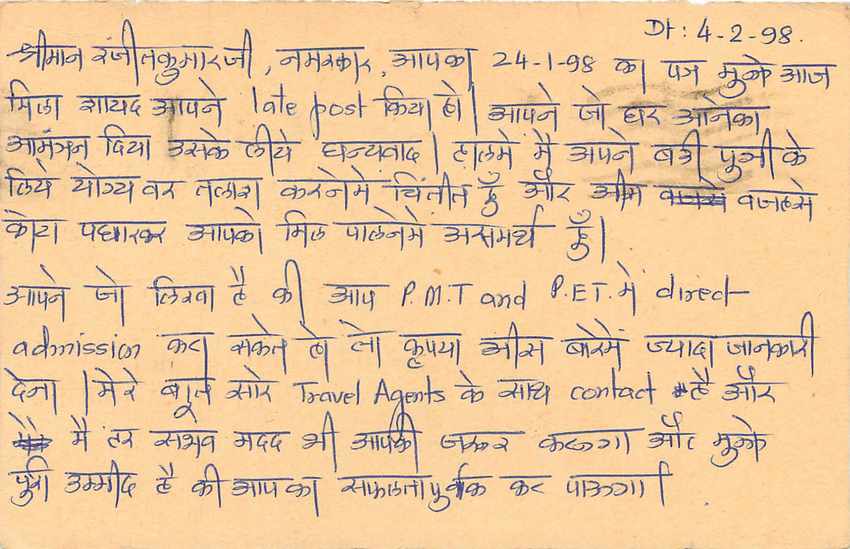 Dt : 4-2-98.
श्रीमान रंजीतकुमारजी, नमस्कार, आपका 24-1-98 का पत्र मुझे आज
मिला शायद आपने late post किया हो। आपने जो घर आनेका
आमंत्रन दिया उसके लीये धन्यवाद। हालमे मै अपने बडी पुत्री के
लिये योग्य वर तलाश करनेमे चिंतीत हुँ और ईस वजहसे
कोटा पधारकर आपको मिल पानेमे असमर्थ हुँ।
आपने जो लिखा है की आप P.M.T and P.E.T. मे direct
admission करा सकते हो तो कृपया ईस बारेमें ज्यादा जानकारी
देना। मेरे सारे Travel Agents के साथ contact है और
मै हर संभव मदद भी आपकी जरूर करूंगा और मुझे
पुरी उम्मीद है की आप का सफलतापुर्वक कर पाऊंगा।